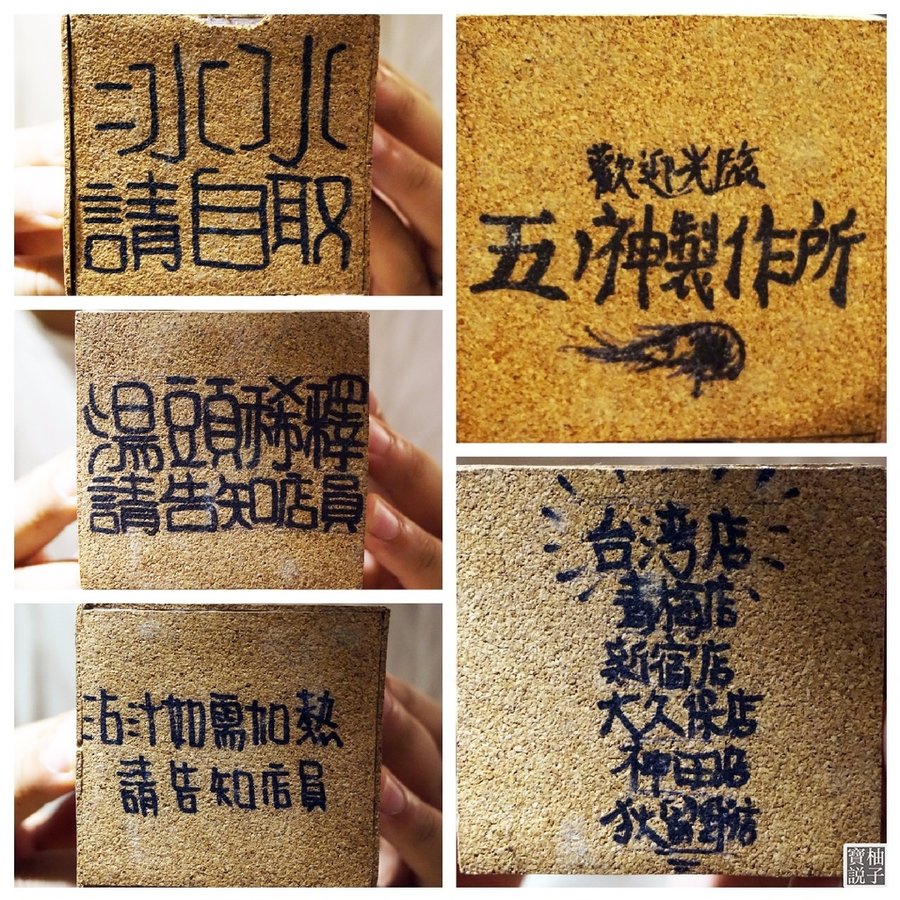 冰水
請自取
湯頭稀釋
請告知店員
沾汁如需加熱
請告知店員
歡迎光臨
五ノ神製作所
台湾店
青梅店
新宿店
大久保店
神田店
狄窪店
柚子
寶説